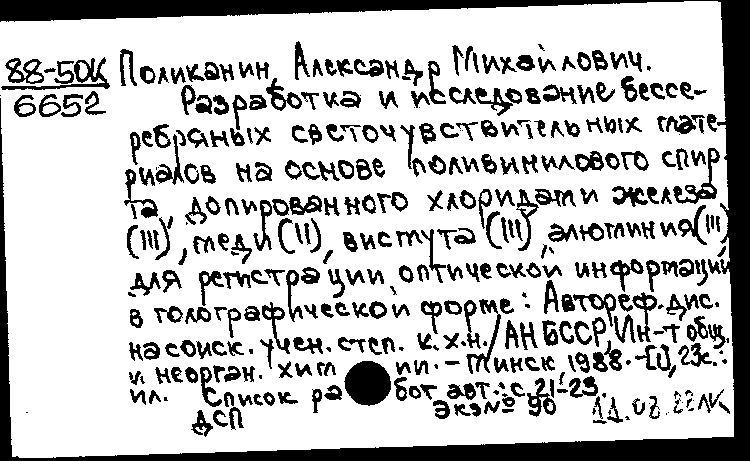 88-50К Поликанин, Александр Михайлович.
6652 Разработка и исследование бессе-
ребряных светочувствительных мате-
риалов на основе поливинилового спир
та, допированного хлоридами железа
(III), меди (II), висмута (III), алюминия (III)
для регистрации оптической информации
в голографической форме: Автореф. дис.
на соиск. учен. степ. к.х.н./АН БССР, Ин-т общ.
и неорган. хим ии. - Минск, 1988. - [1], 23с.:
ил. Список ра бот авт.: с. 21-23.
ДСП Экз № 90 11.02.88 ЛК